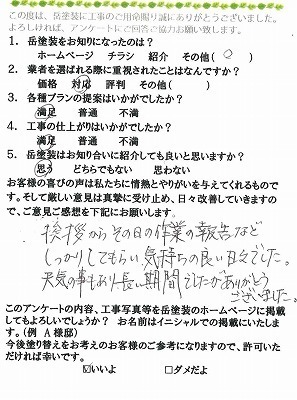 この度は、岳塗装に工事のご用命賜り誠にありがとうございました。
よろしければ、アンケートにご回答ご協力お願い致します。
1. 岳塗装をお知りになったのは?
ホームページ チラシ 紹介 その他( )
2. 業者を選ばれる際に重視されたことはなんですか?
価格 対応 評判 その他( )
3. 各種プランの提案はいかがでしたか?
満足 普通 不満
4. 工事の仕上がりはいかがでしたか?
満足 普通 不満
5. 岳塗装はお知り合いに紹介しても良いと思いますか?
思う どちらでもない 思わない
お客様の喜びの声は私たちに情熱とやりがいを与えてくれるものです。
そして厳しい意見は真摯に受け止め、日々改善していきますので、
ご意見ご感想を下記にお願いします。
挨拶からその日の作業の報告など
しっかりしてもらい気持ちの良い方々でした。
天気の事もあり長い期間でしたがありがとう
ございました。
このアンケートの内容、工事写真等を岳塗装のホームページに掲載
してもよろしいでしょうか? お名前はイニシャルでの掲載にいたしま
す。(例 A様邸)
今後塗り替えをお考えのお客様のご参考になりますので、許可いた
だければ幸いです。
☑いいよ □ダメだよ